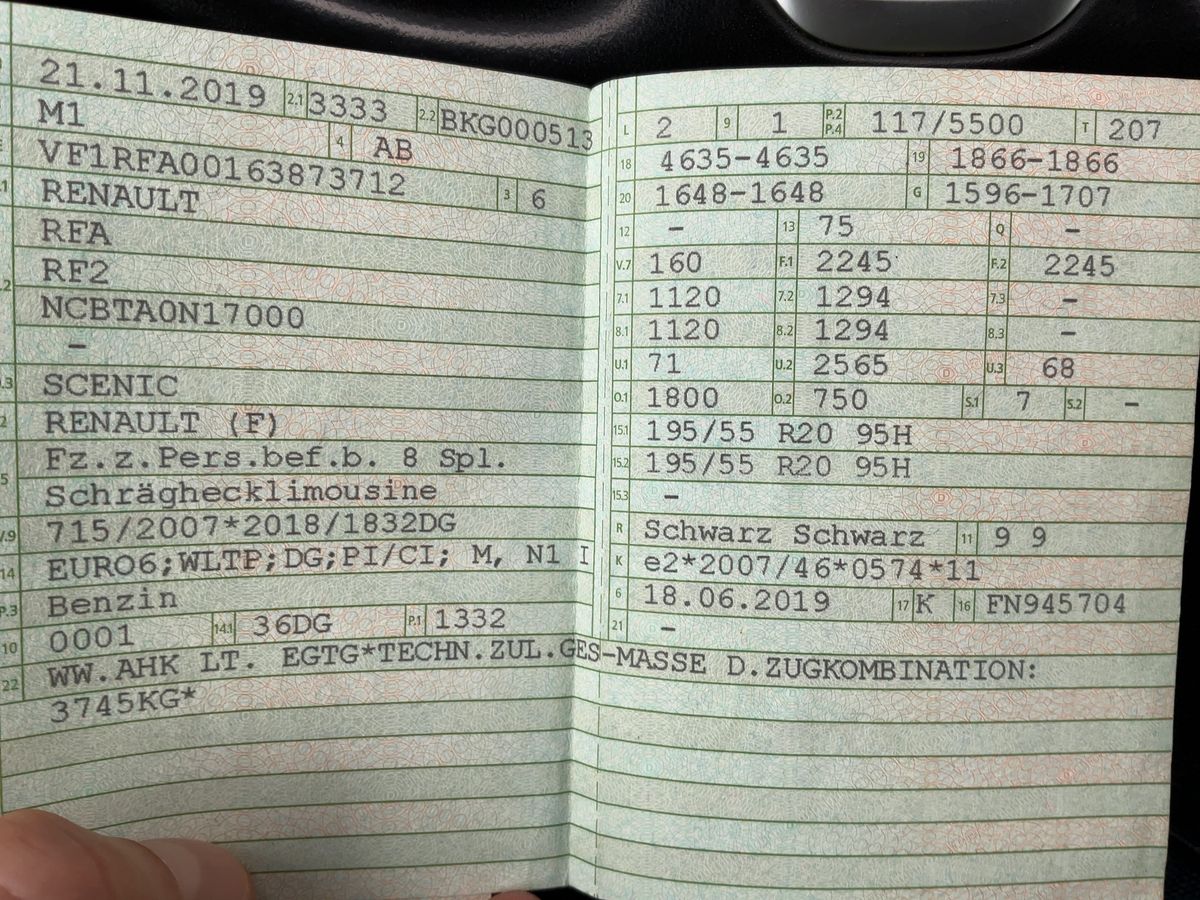 21.11.2019 2.1 3333 2.2 BKG000513
M1 4 AB
VF1RFA00163873712 3 6
RENAULT
RFA
RF2
NCBTA0N17000
–
SCENIC
RENAULT (F)
Fz.z.Pers.bef.b. 8 Spl.
Schräghecklimousine
715/2007*2018/1832DG
14 EURO6;WLTP;DG;PI/CI; M, N1 I
P.3 Benzin
10 0001 14.1 36DG P.1 1332
22 WW.AHK LT. EGTG*TECHN.ZUL.GES-MASSE D.ZUGKOMBINATION:
3745KG*
L 2 9 1 P.2 P.4 117/5500 T 207
18 4635-4635 19 1866-1866
20 1648-1648 G 1596-1707
12 – 13 75 Q –
V.7 160 F.1 2245 F.2 2245
7.1 1120 7.2 1294 7.3 –
8.1 1120 8.2 1294 8.3 –
U.1 71 U.2 2565 U.3 68
O.1 1800 O.2 750 S.1 7 S.2 –
15.1 195/55 R20 95H
15.2 195/55 R20 95H
15.3 –
R Schwarz Schwarz 11 9 9
K e2*2007/46*0574*11
6 18.06.2019 17 K 16 FN945704
21 –